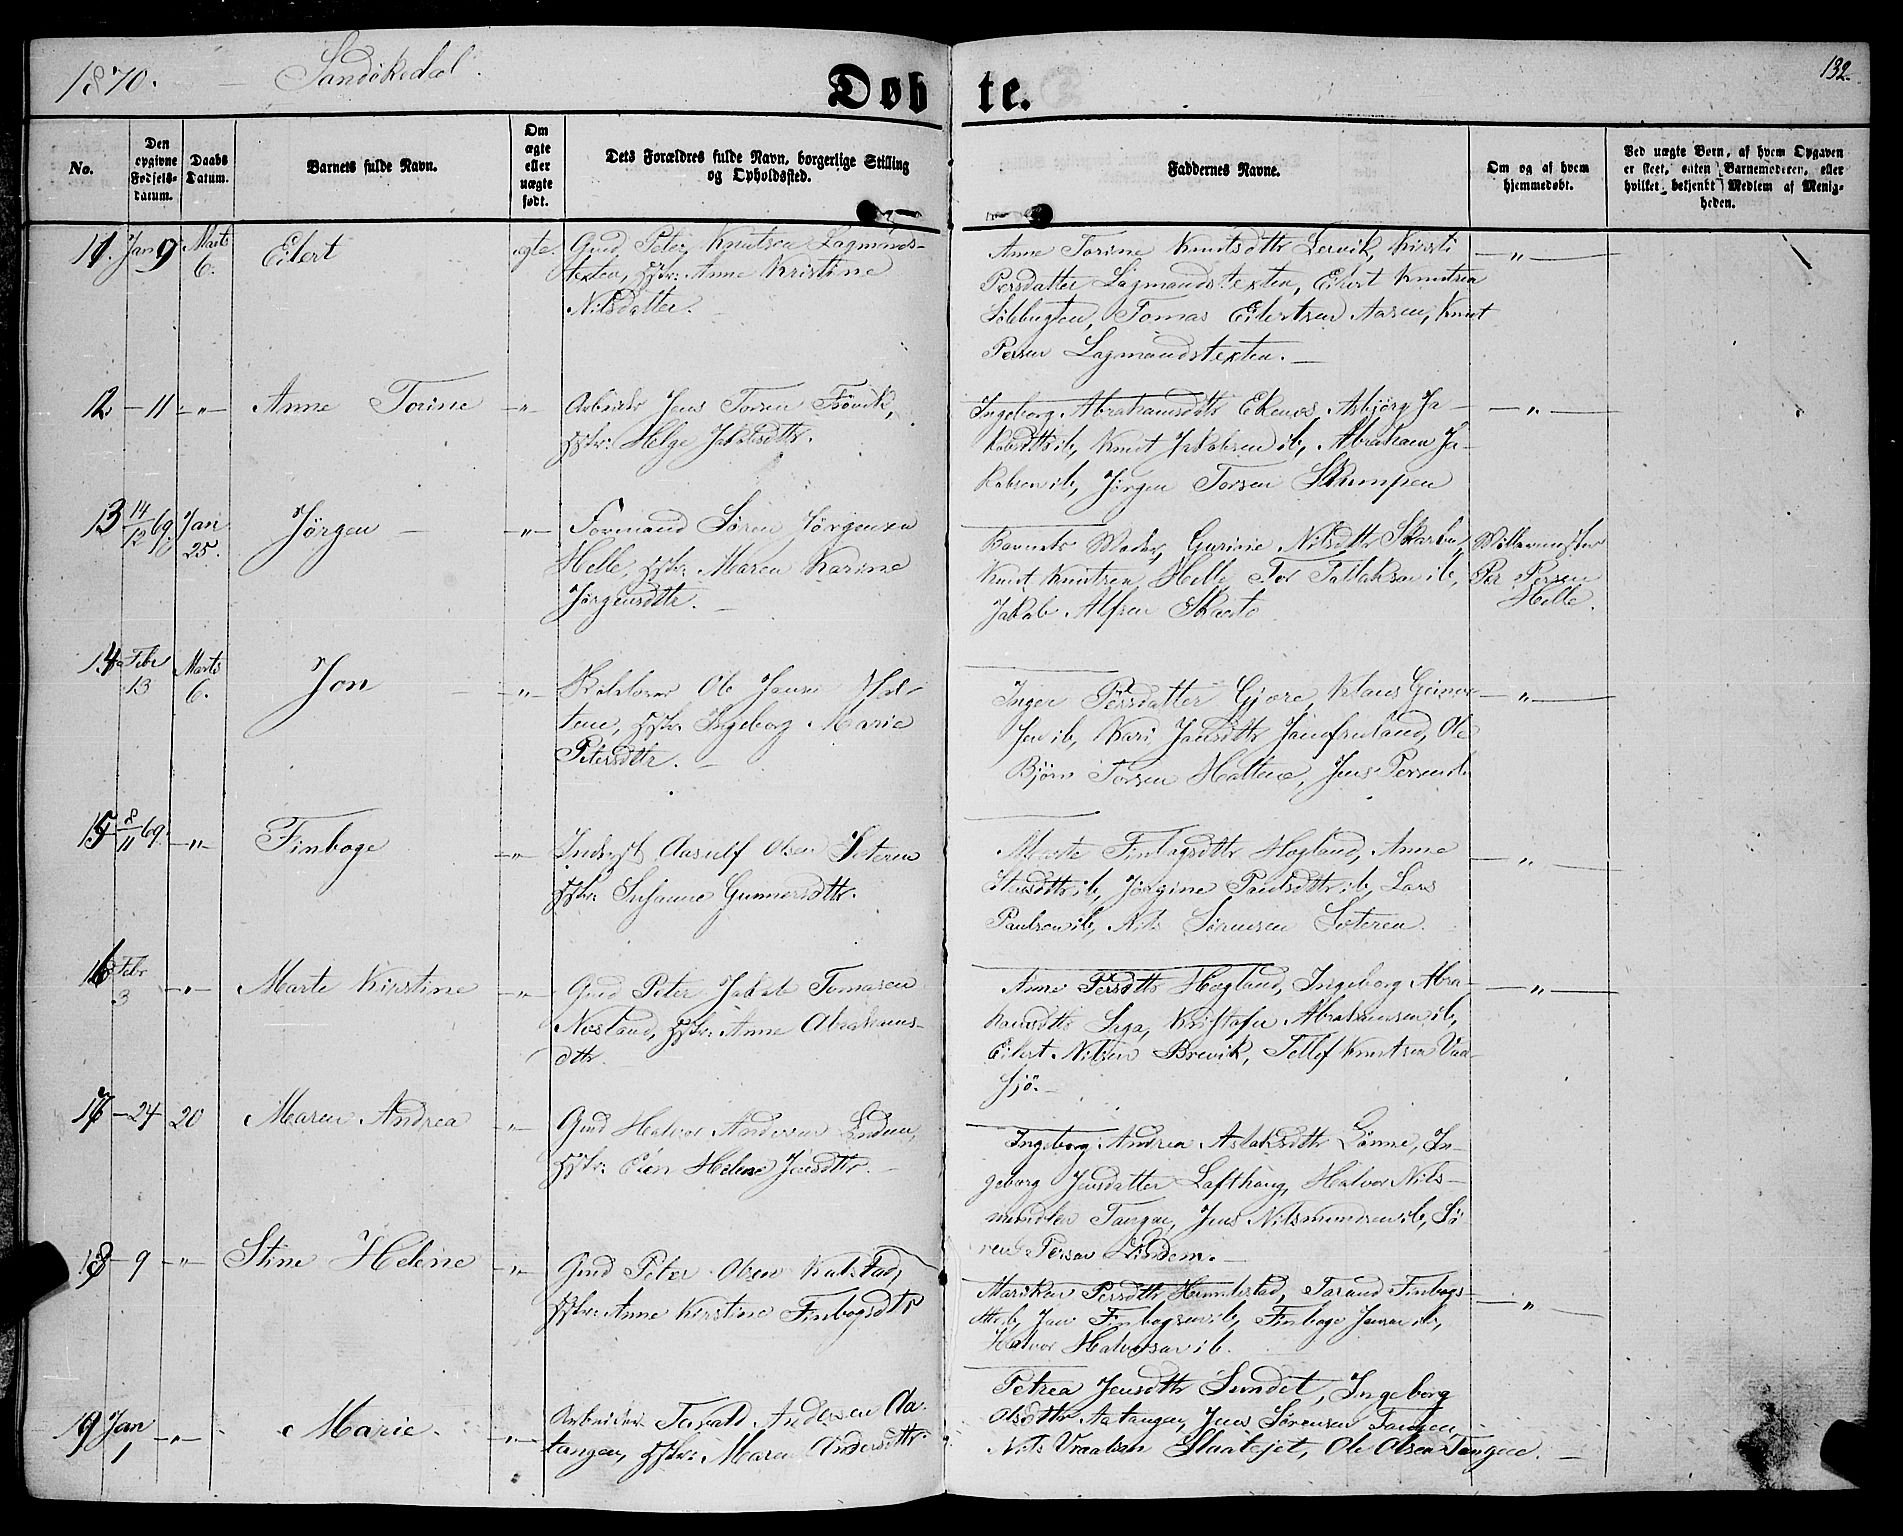 1870. — Sandökedal.
Døbte.
132.
No.
Den opgivne Fødsels-datum.
Daabs Datum.
Barnets fulde Navn.
Om ægte eller uægte født.
Dets Forældres fulde Navn, borgerlige Stilling og Opholdssted.
Faddernes Navne.
Om og af hvem hjemmedøbt.
Ved uægte Børn, af hvem Opgaven er skeet, enten Barnemoderen, eller hvilket bekjendt Medlem af Menigheden.
11. Jan 9 Marts 6. Eilert ægte. Gmd Peter Knutsen Lagmands-
texten, Hstr: Anne Kristine
Nilsdatter.
Anne Torine Knutsdtr Lervik, Kirsti — " —
Persdatter Lagmandstexten, Eilert Knutsen
Sölebugten, Tomas Eilertsen Aasen, Knut
Persen Lagmandstexten. —
12. — 11 — " — Anne Torine — " — Arbeider Jens Torsen
Hstr: Helge Jakobsdtr.
Ingeborg Abrahamsdtr Ekenes, Asbjørg Ja- — " —
kobsdtr ib, Knut Jakobsen ib, Abraham Ja-
kobsen ib, Jörgen Torsen Skumpen
13 14/12 69. Jan 25. Jörgen — — " — Formand Sören Jörgensen
Helle, Hstr: Maren Karine
Jörgensdtr. —
Barnets Moder, Gurine Nilsdtr
Knut Knutsen Helle, Tor Tallaksen ib,
Jakob Alfsen
Per Persen
Helle.
14. Febr 13 Marts 6. Jon — " — Ole Jansen Hal-
tene, Hstr: Ingeborg Marie
Petersdtr. —
Inger Persdatter Gjære, Klaus — " —
ib, Kari Jansdtr Jomfruland, Ole
Björn Torsen Haltene, Jens Persen ib
15 8/11 69. — " — Finboge — " — Inderst Aasulf Olsen Seteren
Hstr: Susanne Gunnersdtr.
Marte Finbogsdtr Hogland, Anne — " —
ib, Jörgine Paulsdtr ib, Lars
Paulsen ib, Nils Sörensen Seteren.
16 Febr 3 — " — Marte Kirstine — " — Gmd Peter Jakob Tomasen
Nesland, Hstr: Anne Abrahams-
dtr.
Anne Persdtr Hogland, Ingeborg Abra- — " —
hamsdtr Kristofer Abrahamsen ib,
Eilert Nilsen Brevik, Tellef Knutsen Vad-
sjö. —
17 — 24 20 Maren Andrea " Gmd Halvor Andersen Lindem,
Hstr: Elen Helene Jensdtr. —
Ingeborg Andrea Aslaksdtr Lönne, In-
geborg Jensdatter Lofthaug, Halvor Nils-
Jens Nilsmundsen ib, Sö-
ren Persen Lindem. —
18 — 9 — " — Stine Helene — " — Gmd Peter Olsen Kalstad,
Hstr: Anne Kirstine Finbogsdtr
Mariken Persdtr Hummelstad, Tarand Finbogs- — " —
dtr ib, Jan Finbogsen ib, Finboge Jansen ib,
Halvor Halvorsen ib.
19 Jan 1 — " — Marie. — " — Arbeider Torvald Andersen Aa-
tangen, Hstr: Maren Andersdtr.
Petrea Jensdtr Sundet, Ingeborg
Olsdtr Aatangen, Jens Sörensen Tangen,
Nils Vraalsen Ole Olsen Tangen. —